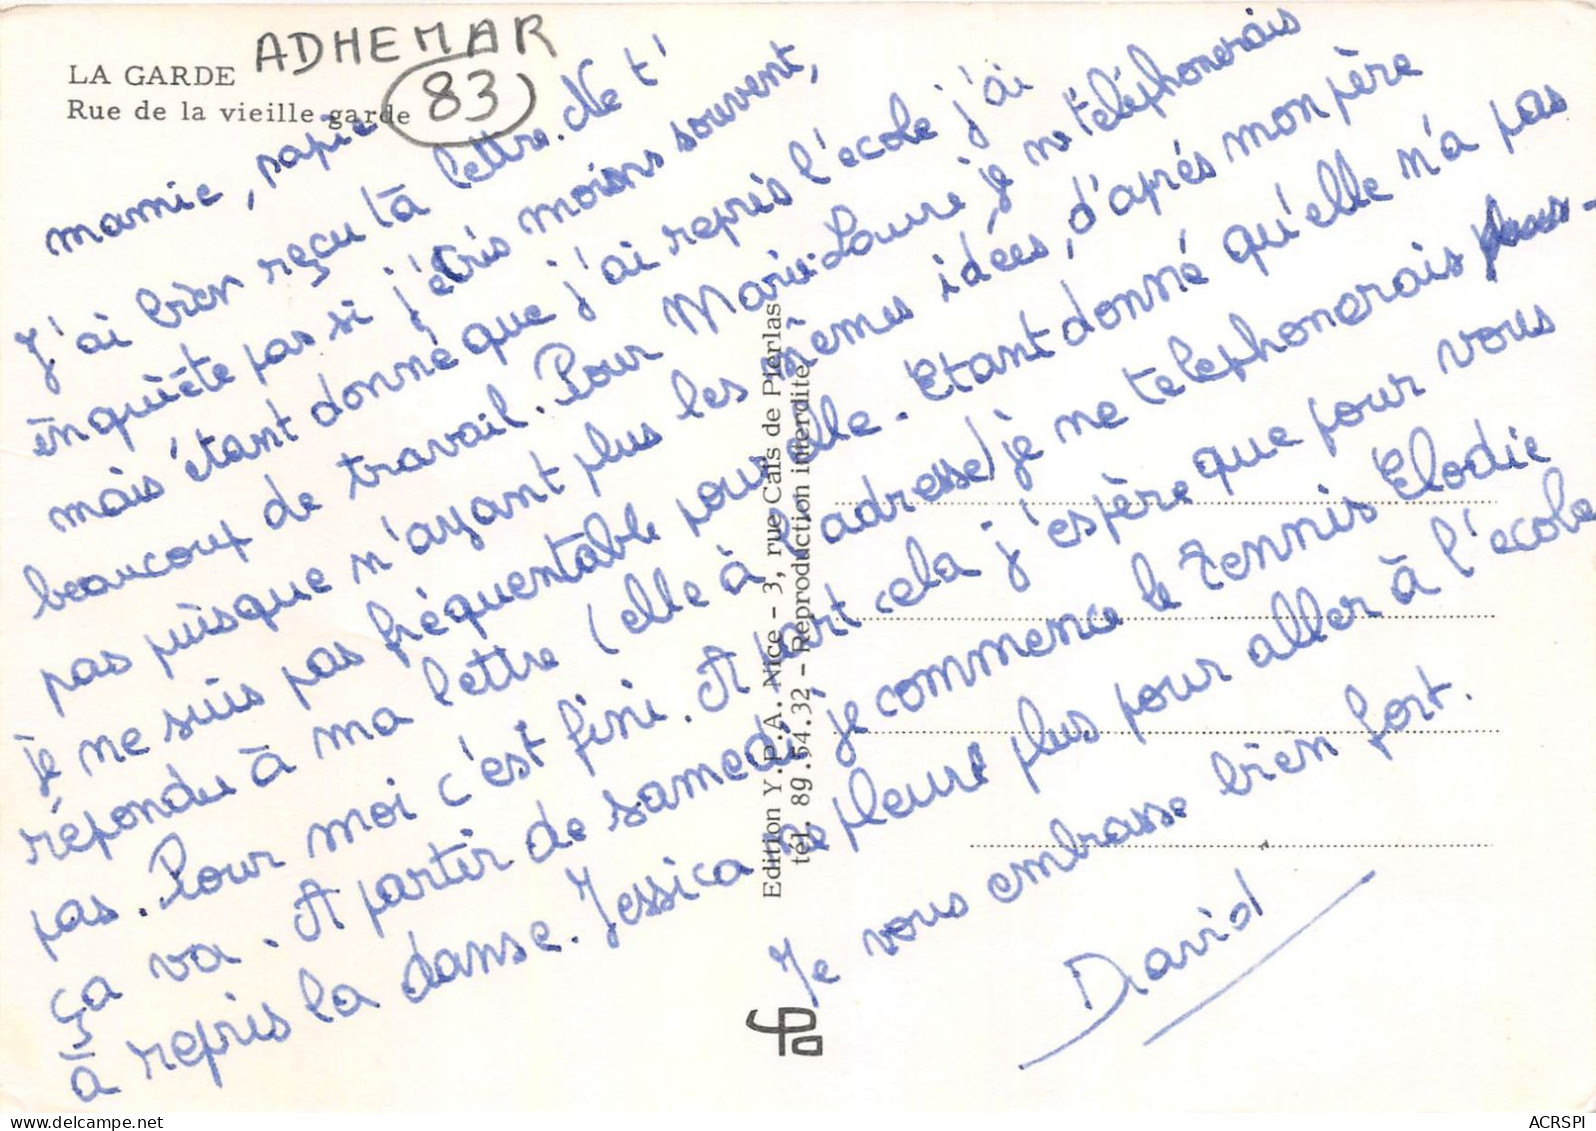 LA GARDE ADHEMAR
Rue de la vieille garde 83
mamie, papie
J'ai bien reçu tà lettre. Ne t'
enquiète pas si j'écris moins souvent,
mais étant donné que j'ai repris l'école j'ai
beaucoup de travail. Pour Marie-Laure je ne téléphonerais
pas puisque n'ayant plus les mêmes idées, d'aprés mon père
je ne suis pas fréquentable pour elle. Etant donné qu'elle n'a pas
répondu à ma lettre (elle à l'adresse) je ne telephonerais plus.
pas. Pour moi c'est fini. A part cela j'espère que pour vous
ça va. A partir de samedi je commence le tennis Elodie
à repris la danse. Jessica ne pleure plus pour aller à l'école
Je vous embrasse bien fort.
David
Edition Y.P.A. Nice - 3, rue Caïs de Pierlas
tél. 89.54.32 - Reproduction interdite
ypa
delcampe.net
ACRSPI